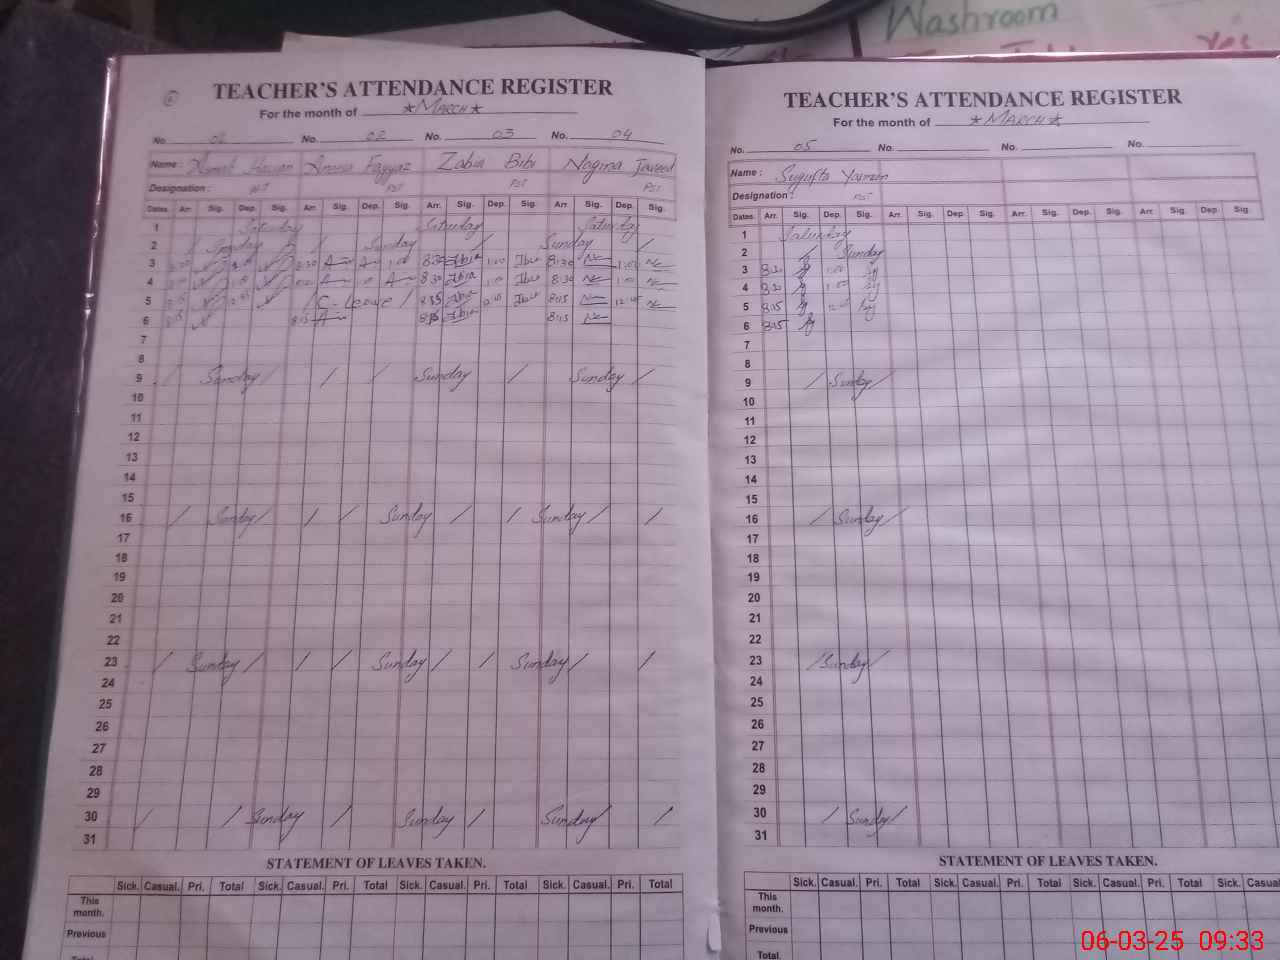 Washroom
yes
TEACHER'S ATTENDANCE REGISTER
For the month of ★MARCH★
No. 01 No. 02 No. 03 No. 04
Name : Fayyaz Zabia Bibi Nagina
Designation : PST PST PST
Dates. Arr. Sig. Dep. Sig. Arr. Sig. Dep. Sig. Arr. Sig. Dep. Sig. Arr. Sig. Dep. Sig.
1 Saturday Saturday Saturday
2 / Sunday / / Sunday / Sunday /
3 8:30 8:30 1:00 8:30 1:00 8:30 1:00
4 8:30 1:00 8:30 1:00
5 / C-leave / 8:15 8:15 12:45
6 8:15 8:15 8:15 8:15
7
8
9 / Sunday / / / Sunday / Sunday /
10
11
12
13
14
15
16 / Sunday / / / Sunday / / Sunday / /
17
18
19
20
21
22
23 / Sunday / / / Sunday / / Sunday / /
24
25
26
27
28
29
30 / / Sunday / Sunday / Sunday / /
31
STATEMENT OF LEAVES TAKEN.
Sick. Casual. Pri. Total Sick. Casual. Pri. Total Sick. Casual. Pri. Total Sick. Casual. Pri. Total
This month.
Previous
Total.
TEACHER'S ATTENDANCE REGISTER
For the month of ★MARCH★
No. 05 No. No. No.
Name :
Designation : PST
Dates. Arr. Sig. Dep. Sig. Arr. Sig. Dep. Sig. Arr. Sig. Dep. Sig. Arr. Sig. Dep. Sig.
1 Saturday
2 / Sunday
3 8:30 1:00
4 8:30 1:00
5 8:15
6 8:15
7
8
9 / Sunday /
10
11
12
13
14
15
16 / Sunday /
17
18
19
20
21
22
23 / Sunday /
24
25
26
27
28
29
30 / Sunday /
31
STATEMENT OF LEAVES TAKEN.
Sick. Casual. Pri. Total Sick. Casual. Pri. Total Sick. Casual. Pri. Total Sick.
This month.
Previous
Total.
06-03-25 09:33